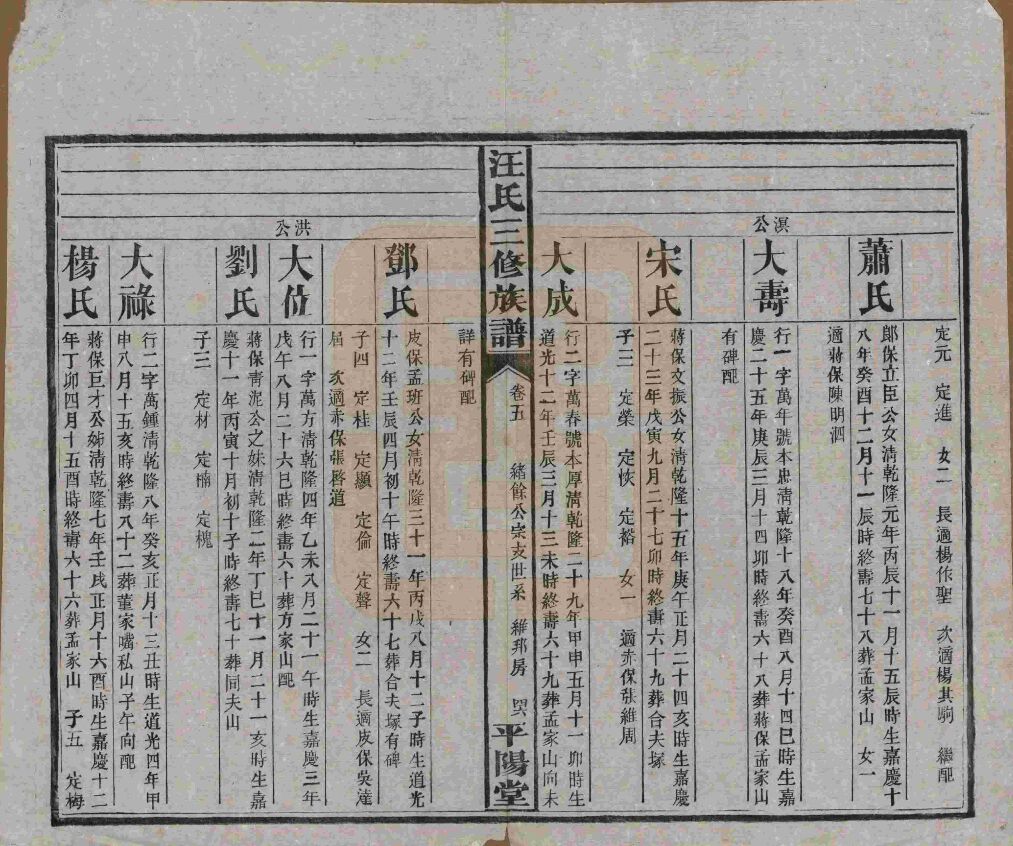 定元　定進　女二　長適楊作聖　次適楊其駒　繼配
溟公
蕭氏
郞保立臣公女淸乾隆元年丙辰十一月十五辰時生嘉慶十
八年癸酉十二月十一辰時終壽七十八葬孟家山　女一
適蔣保陳明泗
大壽
行一字萬年號本忠淸乾隆十八年癸酉八月十四巳時生嘉
慶二十五年庚辰三月十四卯時終壽六十八葬蔣保孟家山
有碑配
宋氏
蔣保文振公女淸乾隆十五年庚午正月二十四亥時生嘉慶
二十三年戊寅九月二十七卯時終壽六十九葬合夫塚
子三　定榮　定恢　定褶　女一　適赤保張維周
大成
行二字萬春號本厚淸乾隆二十九年甲申五月十一卯時生
道光十二年壬辰三月十三未時終壽六十九葬孟家山向未
汪氏三修族譜
卷五　緒餘公宗支世系　維邦房
平陽堂
詳有碑配
鄧氏
皮保孟班公女淸乾隆三十一年丙戌八月十二子時生道光
十二年壬辰四月初十午時終壽六十七葬合夫塚有碑
子四　定桂　定顯　定倫　定聲　女二　長適皮保吳達
屆　次適赤保張啓道
洪公
大位
行一字萬方淸乾隆四年乙未八月二十一午時生嘉慶三年
戊午八月二十六巳時終壽六十葬方家山配
劉氏
蔣保靑泥公之妹淸乾隆二年丁巳十一月二十一亥時生嘉
慶十一年丙寅十月初十子時終壽七十葬同夫山
子三　定材　定楠　定槐
大祿
行二字萬鍾淸乾隆八年癸亥正月十三丑時生道光四年甲
申八月十五亥時終壽八十二葬董家嘴私山子午向配
楊氏
蔣保巨才公姊淸乾隆七年壬戌正月十六酉時生嘉慶十二
年丁卯四月十五酉時終壽六十六葬孟家山　子五　定梅